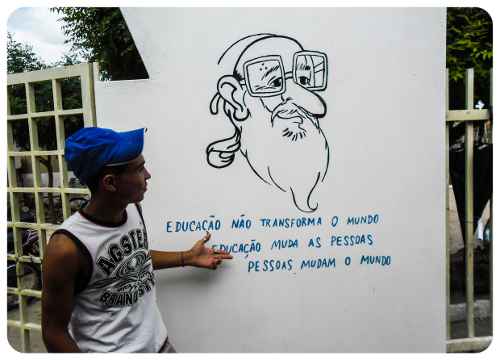 EDUCAÇÃO NÃO TRANSFORMA O MUNDO
EDUCAÇÃO MUDA AS PESSOAS
PESSOAS MUDAM O MUNDO
AGSTER
BRANDSKY